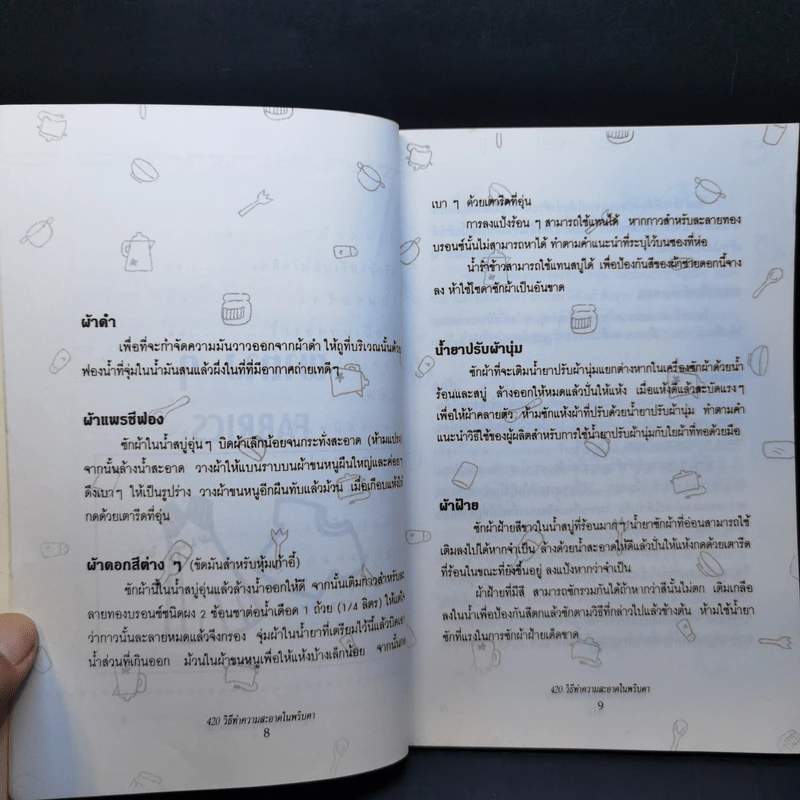 ผ้าดำ
เพื่อที่จะกำจัดความมันวาวออกจากผ้าดำ ให้ถูที่บริเวณนั้นด้วย
ฟองน้ำที่จุ่มในน้ำมันสนแล้วผึ่งในที่ที่มีอากาศถ่ายเทดีๆ
ผ้าแพรชีฟอง
ซักผ้าในน้ำสบู่อุ่นๆ บิดผ้าเล็กน้อยจนกระทั่งสะอาด (ห้ามแปรง)
จากนั้นล้างน้ำสะอาด วางผ้าให้แบนราบบนผ้าขนหนูผืนใหญ่และค่อยๆ
ดึงเบาๆ ให้เป็นรูปร่าง วางผ้าขนหนูอีกผืนทับแล้วม้วน เมื่อเกือบแห้งให้
กดด้วยเตารีดที่อุ่น
ผ้าดอกสีต่าง ๆ (ขัดมันสำหรับหุ้มเก้าอี้)
ซักผ้านี้ในน้ำสบู่อุ่นแล้วล้างน้ำออกให้ดี จากนั้นเติมกาวสำหรับละ
ลายทองบรอนซ์ชนิดผง 2 ช้อนชาต่อน้ำเดือด 1 ถ้วย (1/4 ลิตร) ให้แน่ใจ
ว่ากาวนั้นละลายหมดแล้วจึงกรอง จุ่มผ้าในน้ำยาที่เตรียมไว้นี้แล้วบีบเอา
น้ำส่วนที่เกินออก ม้วนในผ้าขนหนูเพื่อให้แห้งบ้างเล็กน้อย จากนั้นกด
420 วิธีทำความสะอาดในพริบตา
8
เบา ๆ ด้วยเตารีดที่อุ่น
การลงแป้งร้อน ๆ สามารถใช้แทนได้ หากกาวสำหรับละลายทอง
บรอนซ์นั้นไม่สามารถหาได้ ทำตามคำแนะนำที่ระบุไว้บนซองที่ห่อ
น้ำรำข้าวสามารถใช้แทนสบู่ได้ เพื่อป้องกันสีของผ้าชายดอกนี้จาง
ลง ห้ามใช้โซดาซักผ้าเป็นอันขาด
น้ำยาปรับผ้านุ่ม
ซักผ้าที่จะเติมน้ำยาปรับผ้านุ่มแยกต่างหากในเครื่องซักผ้าด้วยน้ำ
ร้อนและสบู่ ล้างออกให้หมดแล้วปั่นให้แห้ง เมื่อแห้งดีแล้วสะบัดแรงๆ
เพื่อให้ผ้าคลายตัว ห้ามซักแห้งผ้าที่ปรับด้วยน้ำยาปรับผ้านุ่ม ทำตามคำ
แนะนำวิธีใช้ของผู้ผลิตสำหรับการใช้น้ำยาปรับผ้านุ่มกับใยผ้าที่ทอด้วยมือ
ผ้าฝ้าย
ซักผ้าฝ้ายสีขาวในน้ำสบู่ที่ร้อนมากๆ น้ำยาซักผ้าที่อ่อนสามารถใช้
เติมลงไปได้หากจำเป็น ล้างด้วยน้ำสะอาดให้ดีแล้วปั่นให้แห้งกดด้วยเตารีด
ที่ร้อนในขณะที่ยังชื้นอยู่ ลงแป้งหากว่าจำเป็น
ผ้าฝ้ายที่มีสี สามารถซักรวมกันได้ถ้าหากว่าสีนั้นไม่ตก เติมเกลือ
ลงในน้ำเพื่อป้องกันสีตกแล้วซักตามวิธีที่กล่าวไปแล้วข้างต้น ห้ามใช้น้ำยา
ซักที่แรงในการซักผ้าฝ้ายเด็ดขาด
420 วิธีทำความสะอาดในพริบตา
9